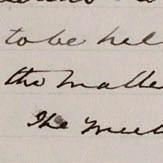 to be hel
the matte
The meet